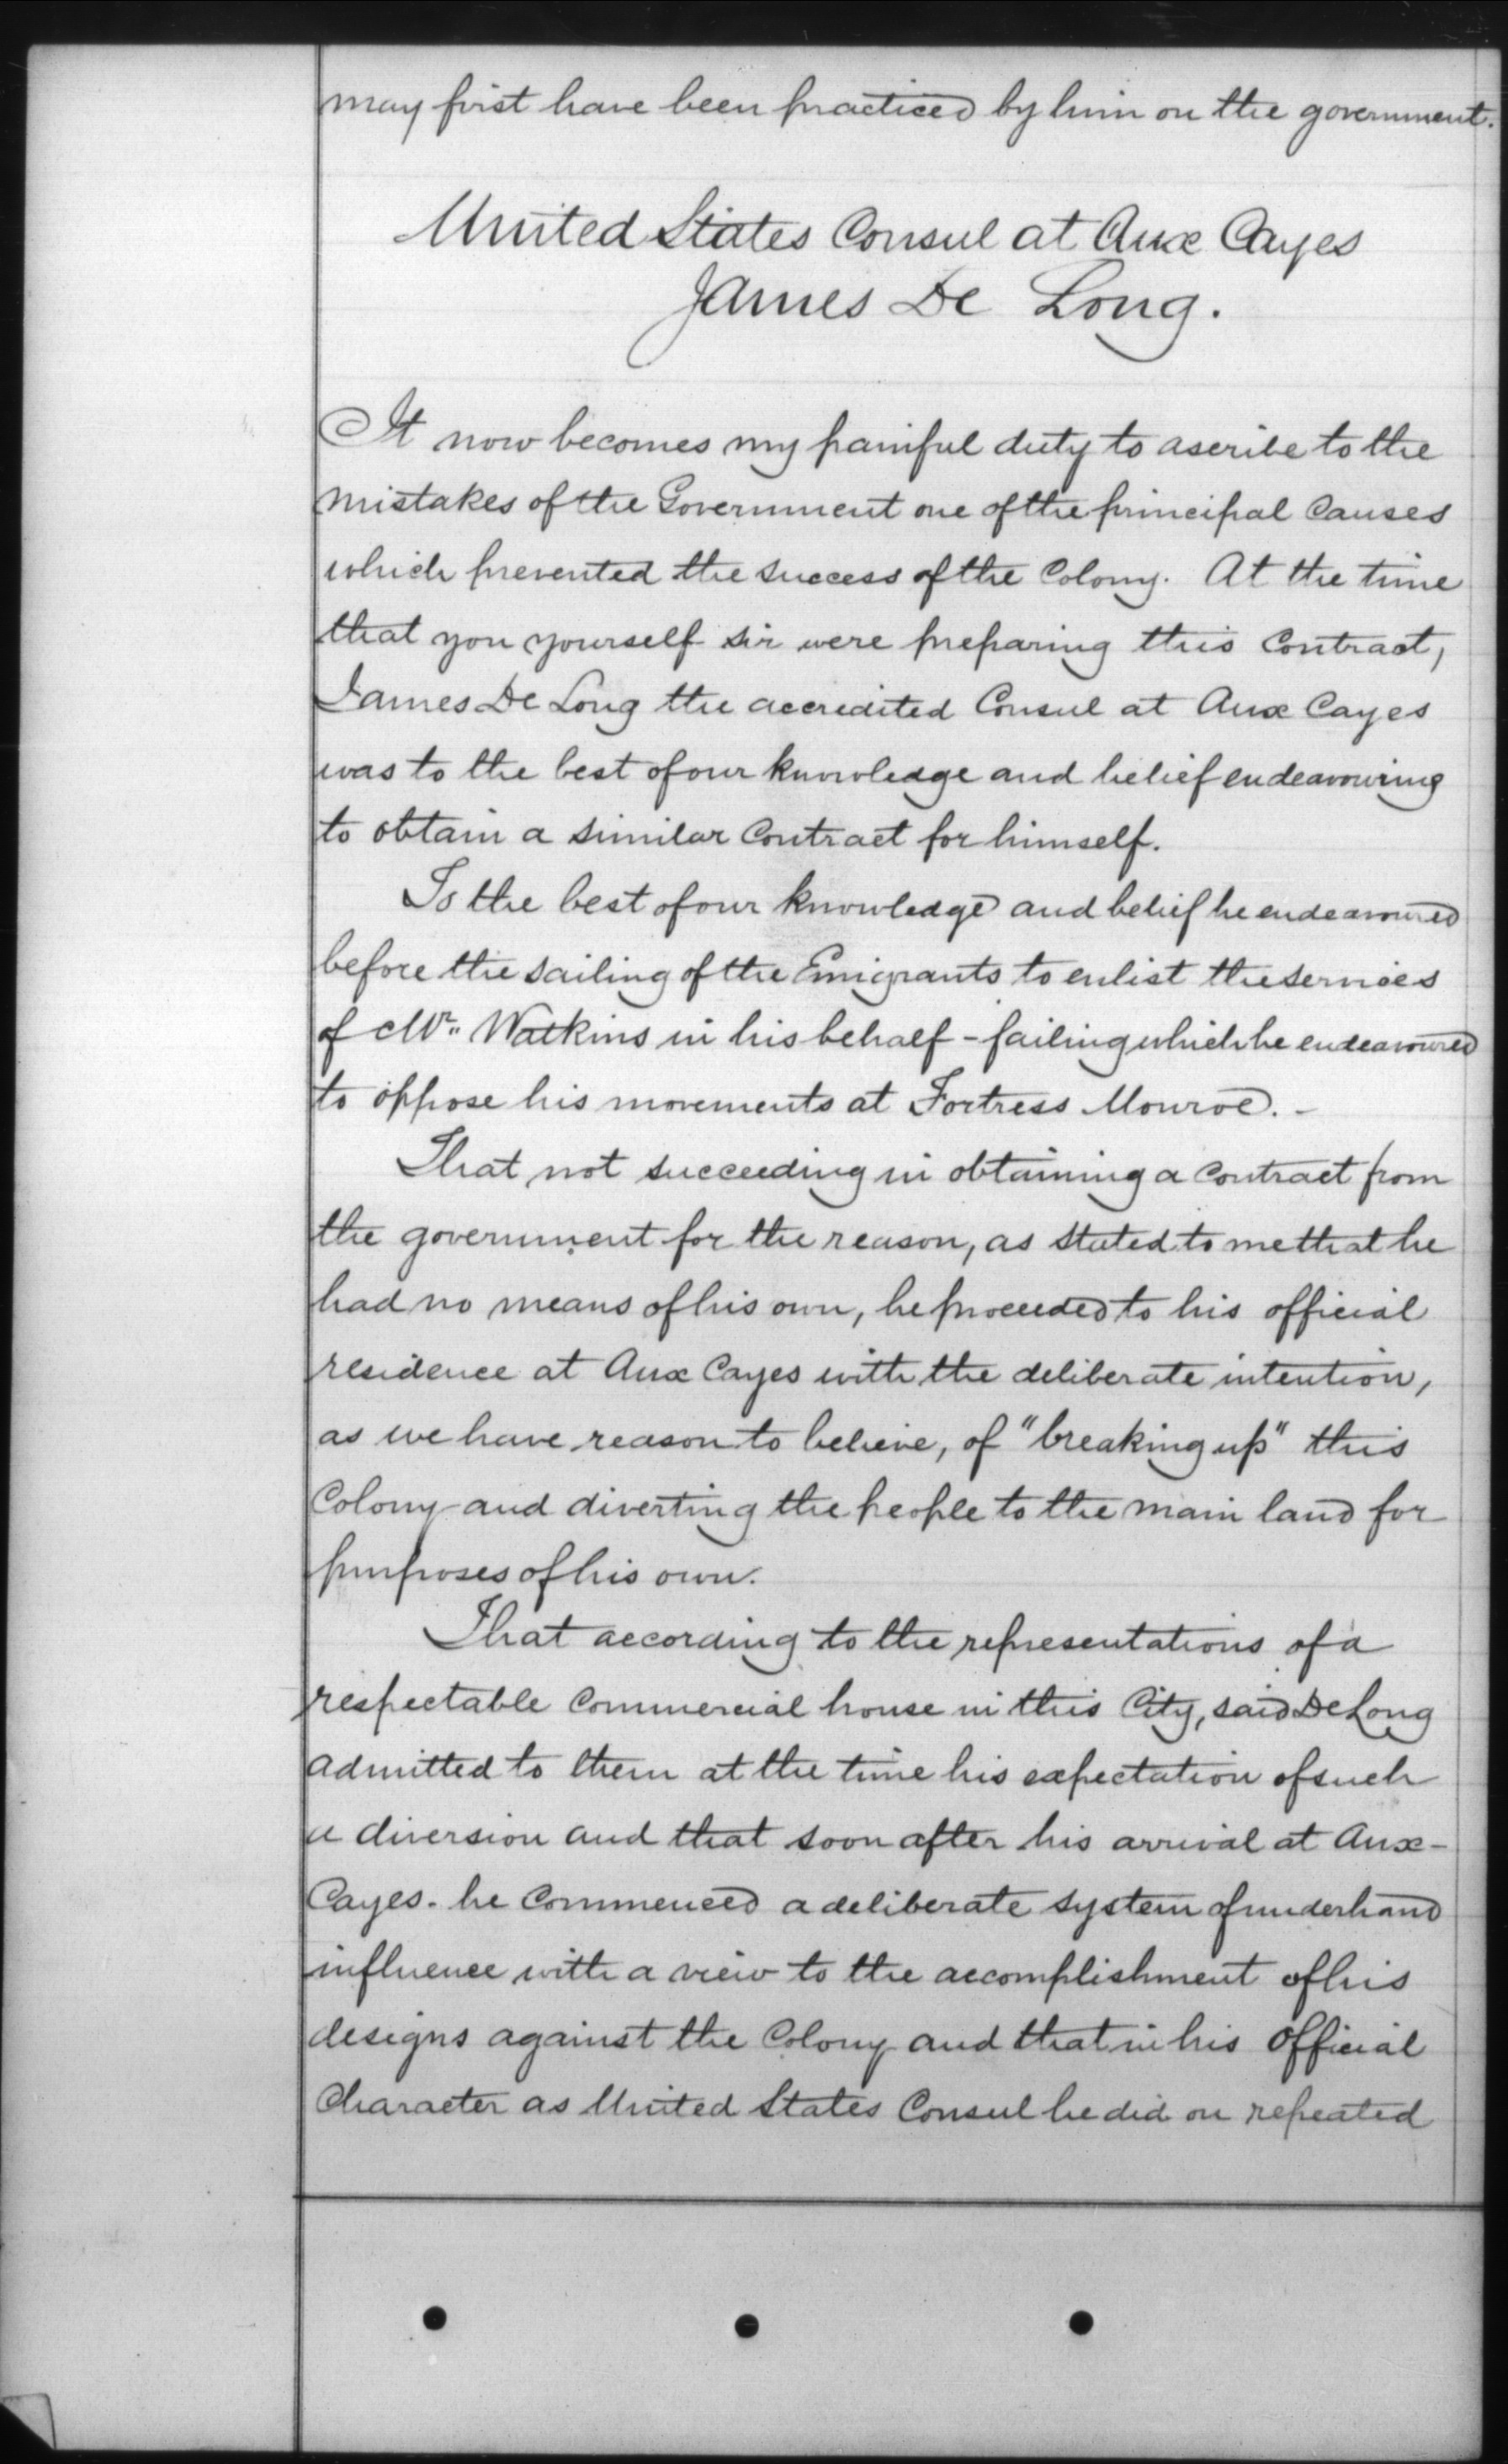 may first have been practiced by him on the government.
United States Consul at Aux Cayes
James De Long.
It now becomes my painful duty to ascribe to the
mistakes of the Government one of the principal Causes
which prevented the success of the Colony. At the time
that you yourself sir were preparing this Contract,
James De Long the accredited Consul at Aux Cayes
was to the best of our knowledge and belief endeavouring
to obtain a similar Contract for himself.
To the best of our knowledge and belief he endeavoured
before the sailing of the Emigrants to enlist the services
of Mr. Watkins in his behalf - failing which he endeavoured
to oppose his movements at Fortress Monroe. -
That not succeeding in obtaining a Contract from
the government for the reason, as stated to me that he
had no means of his own, he proceeded to his official
residence at Aux Cayes with the deliberate intention,
as we have reason to believe, of "breaking up" this
Colony and diverting the people to the main land for
purposes of his own.
That according to the representations of a
respectable Commercial house in this City, said De Long
admitted to them at the time his expectation of such
a diversion and that soon after his arrival at Aux-
Cayes. he Commenced a deliberate system of underhand
influence with a view to the accomplishment of his
designs against the Colony and that in his Official
Character as United States Consul he did on repeated